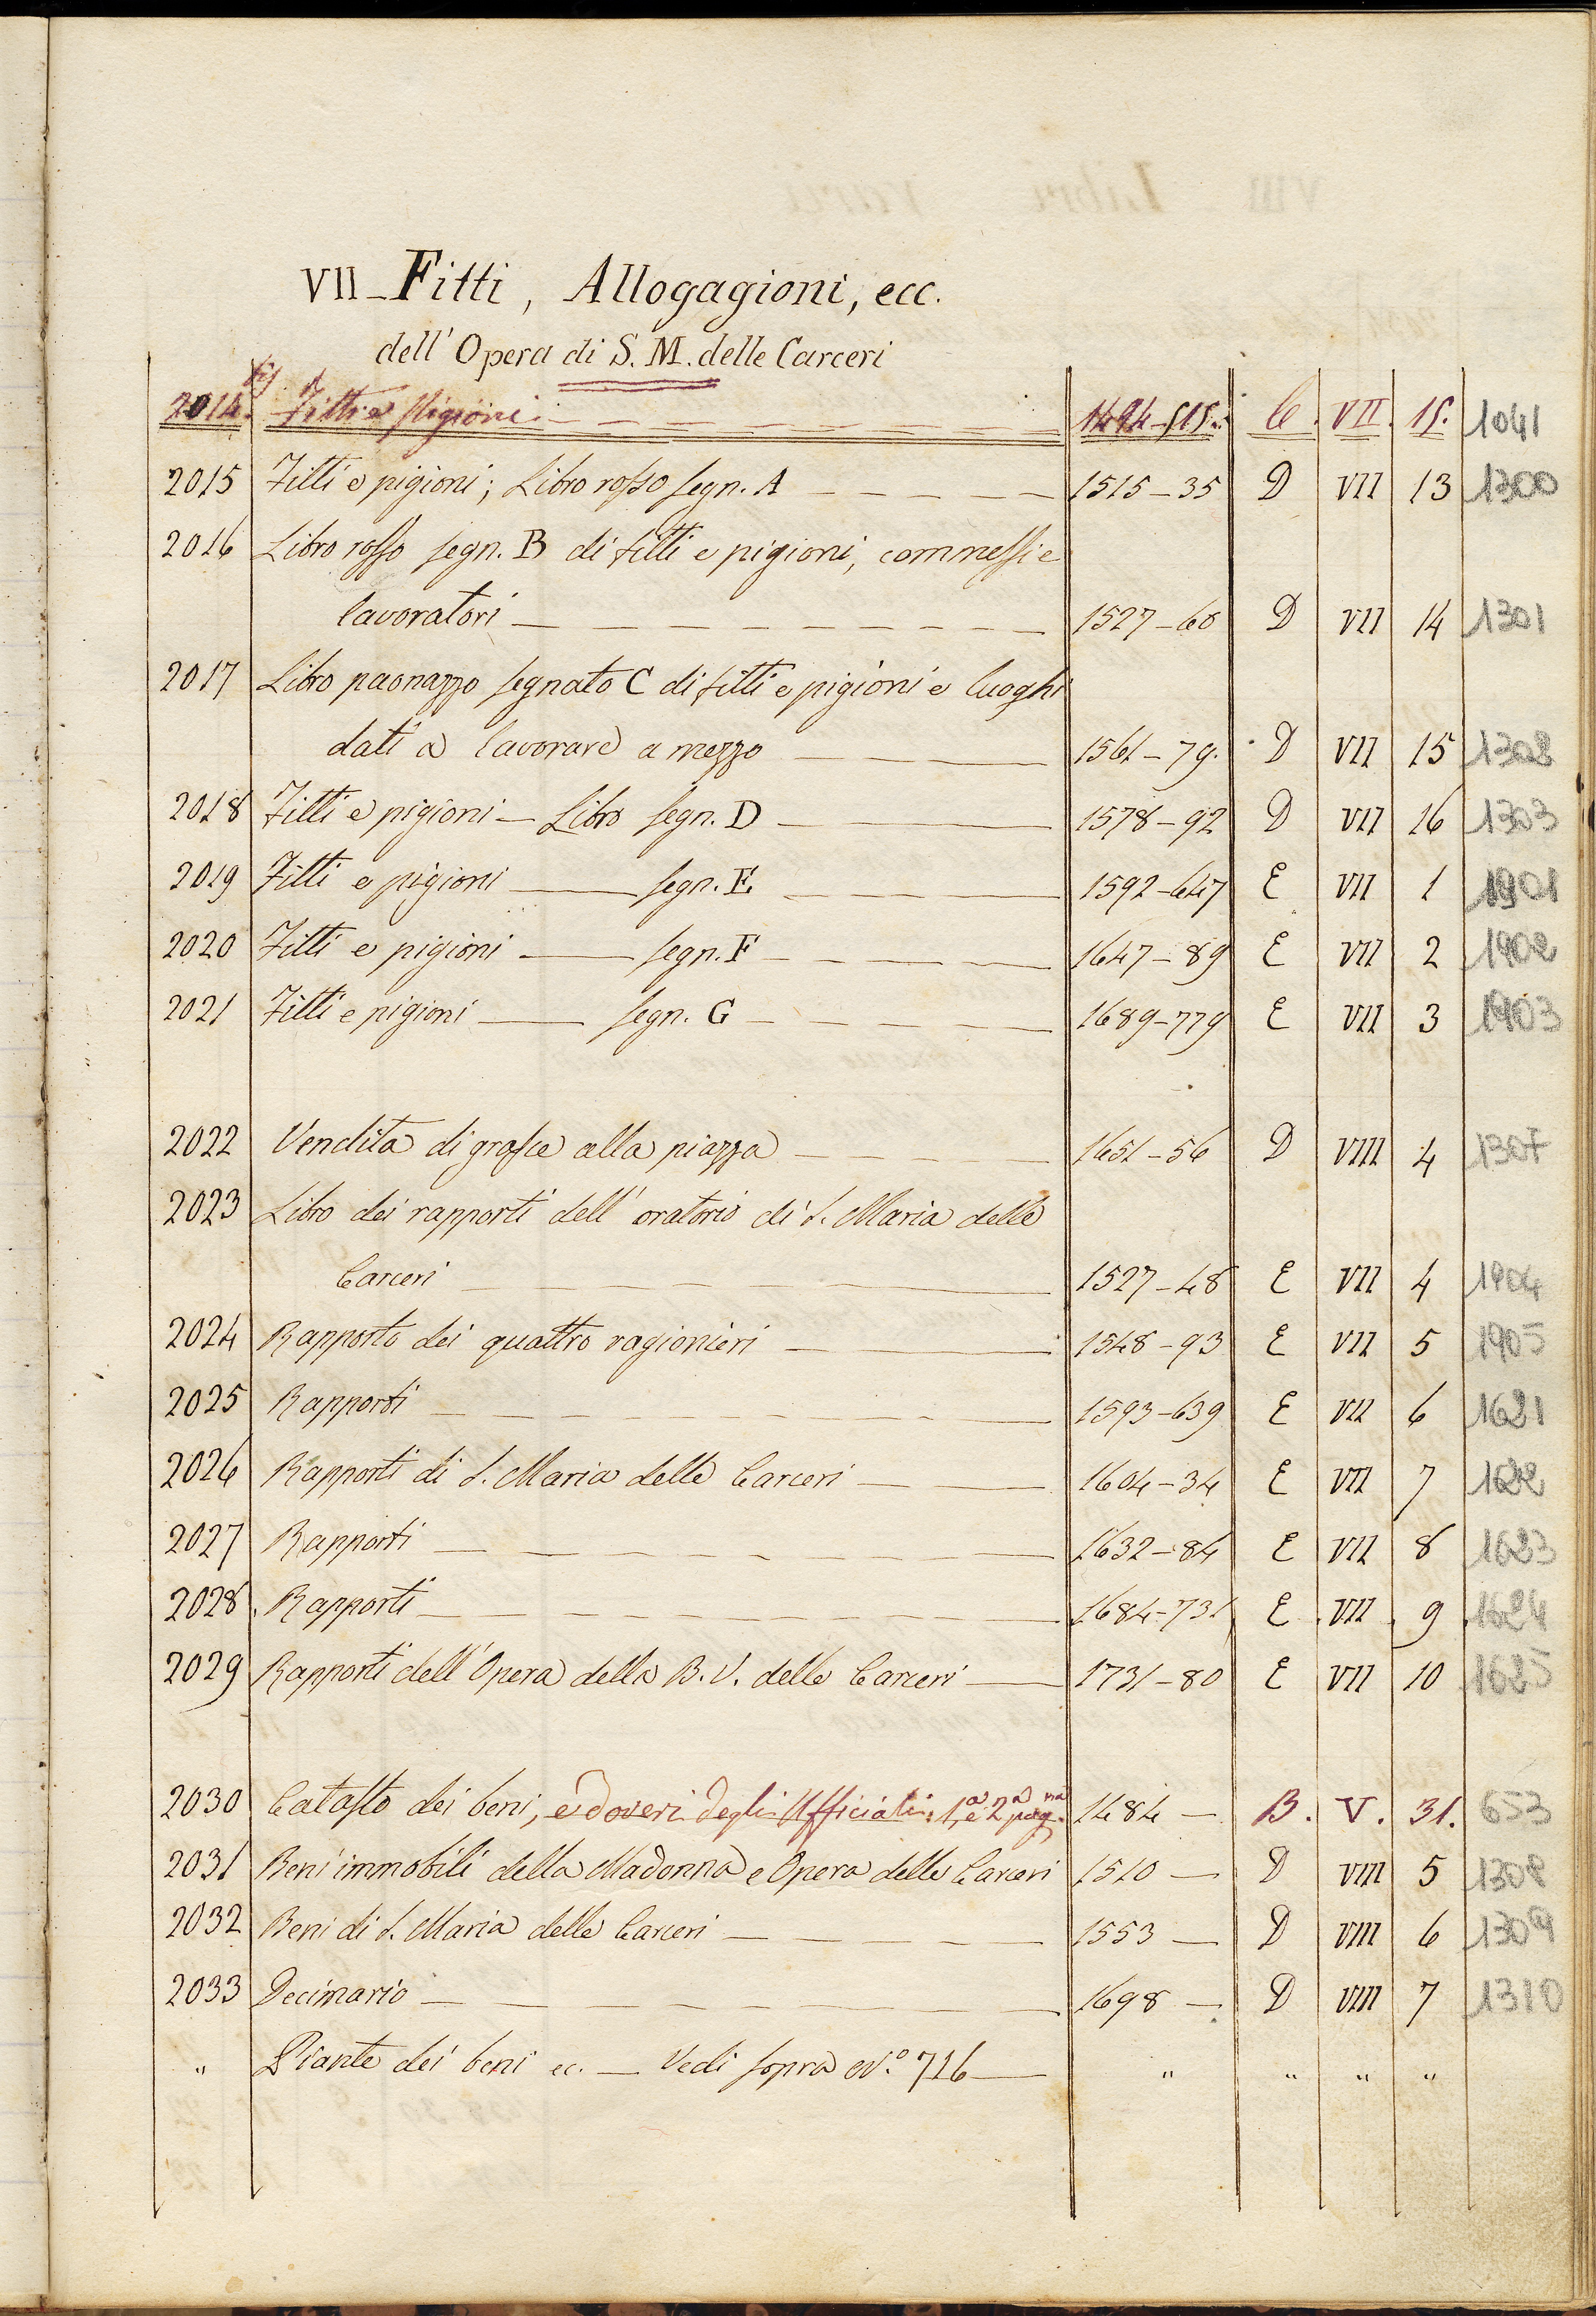 VII - Fitti, Allogagioni, ecc.
dell' Opera di S. M. delle Carceri
2014. bis Fitti e Pigioni 1494-515. C. VII. 15. 1041
2015 Fitti e pigioni; Libro rosso segn. A 1515-35 D VII 13 1300
2016 Libro rosso segn. B di fitti e pigioni, commessi e
lavoratori 1527-60 D VII 14 1301
2017 Libro paonazzo segnato C di fitti e pigioni e luoghi
dati a lavorare a mezzo 1561-79. D VII 15 1302
2018 Fitti e pigioni - Libro segn. D 1578-92 D VII 16 1303
2019 Fitti e pigioni segn. E 1592-647 E VII 1 1901
2020 Fitti e pigioni segn. F 1647-89 E VII 2 1902
2021 Fitti e pigioni segn. G 1689-779 E VII 3 1903
2022 Vendita di grasce alla piazza 1651-56 D VIII 4 1307
2023 Libro dei rapporti dell' oratorio di S. Maria delle
Carceri 1527-48 E VII 4 1904
2024 Rapporto dei quattro ragionieri 1548-93 E VII 5 1905
2025 Rapporti 1593-639 E VII 6 1621
2026 Rapporti di S. Maria delle Carceri 1604-34 E VII 7 1622
2027 Rapporti 1632-84 E VII 8 1623
2028 Rapporti 1684-731 E VII 9 1624
2029 Rapporti dell' Opera della B. V. delle Carceri 1731-80 E VII 10 1625
2030 Catasto dei beni, e doveri degli Ufficiali. 1a e 2a pagna 1484 - B. V. 31. 653
2031 Beni immobili della Madonna e Opera delle Carceri 1510 - D VIII 5 1308
2032 Beni di S. Maria delle Carceri 1553 - D VIII 6 1309
2033 Decimario 1698 - D VIII 7 1310
" Piante dei beni ec. - Vedi sopra No. 716 " " " "